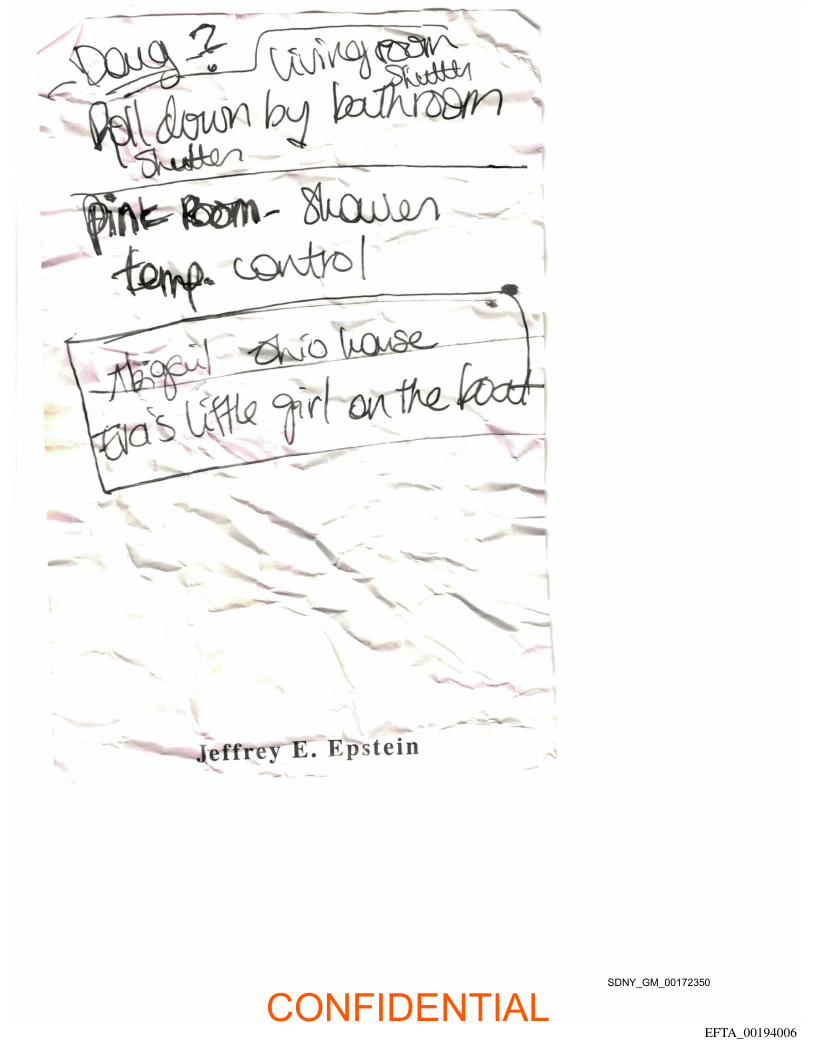 Doug ?
Living room
Shutter
Roll down by bathroom
Shutter
Pink Room - Shower
temp. control
Abigail Ohio house
Eva's little girl on the boat
Jeffrey E. Epstein
SDNY_GM_00172350
CONFIDENTIAL
EFTA_00194006